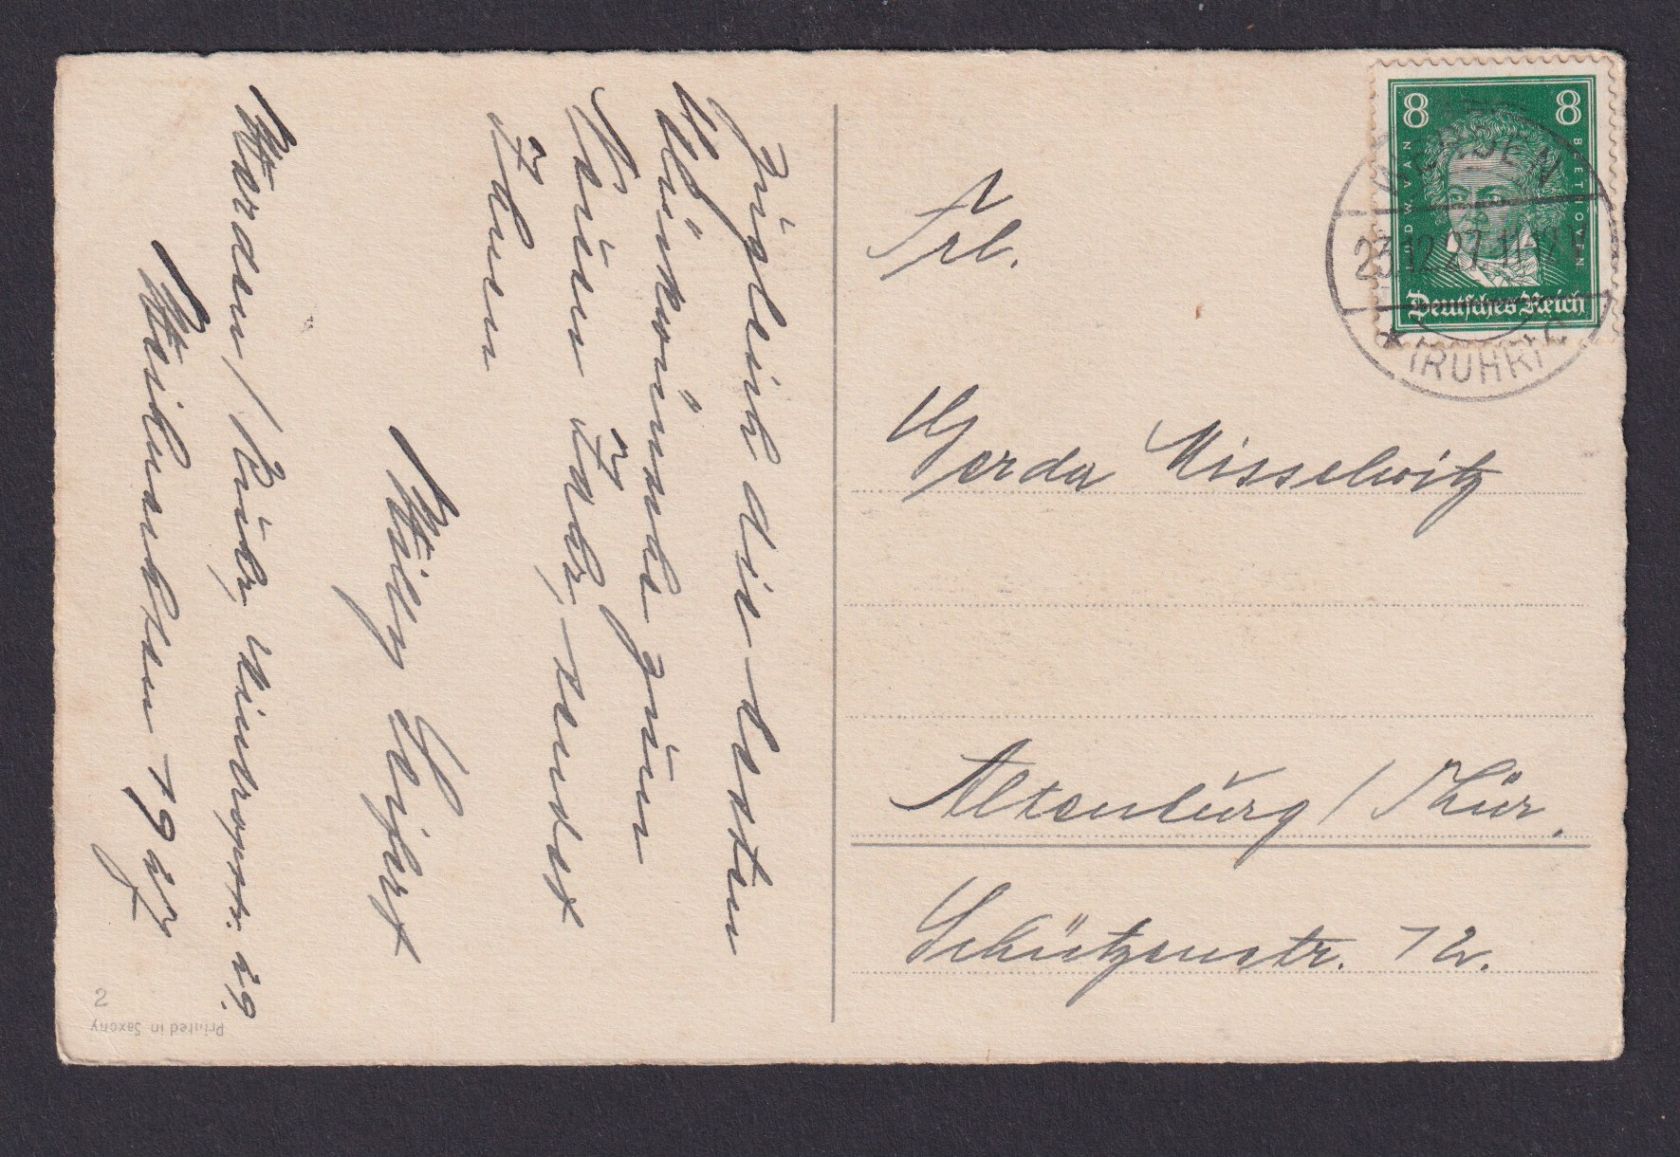 Zugleich die besten
Glückwünsche zum
Neuen Jahr, sendet
Ihnen
Willy Seifert
Werden / Ruhr,
Weihnachten 1927
Printed in Saxony
2
8 8
LUDW. VAN BEETHOVEN
Deutsches Reich
WERDEN
23.12.27. 11-12
* (RUHR) c
Frl.
Gerda Misselwitz
Altenburg / Thür.
Schützenstr. 12.